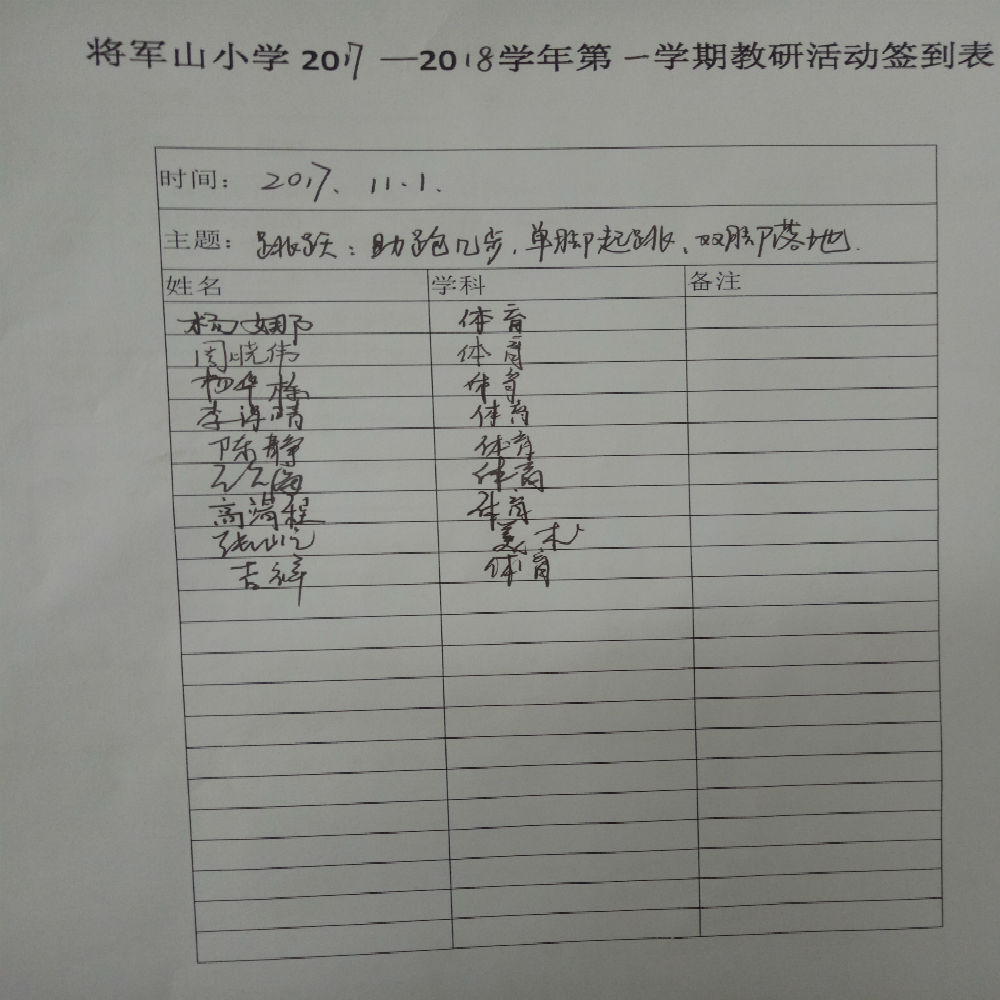 将军山小学2017—2018学年第一学期教研活动签到表
时间：2017、11.1.
主题：跳跃：助跑几步，单脚起跳、双脚落地.
姓名 学科 备注
杨娜 体育
周晓伟 体育
杨华栋 体育
李诗晴 体育
陈静 体育
体育
高满程 体育
张 美术
吉祥 体育